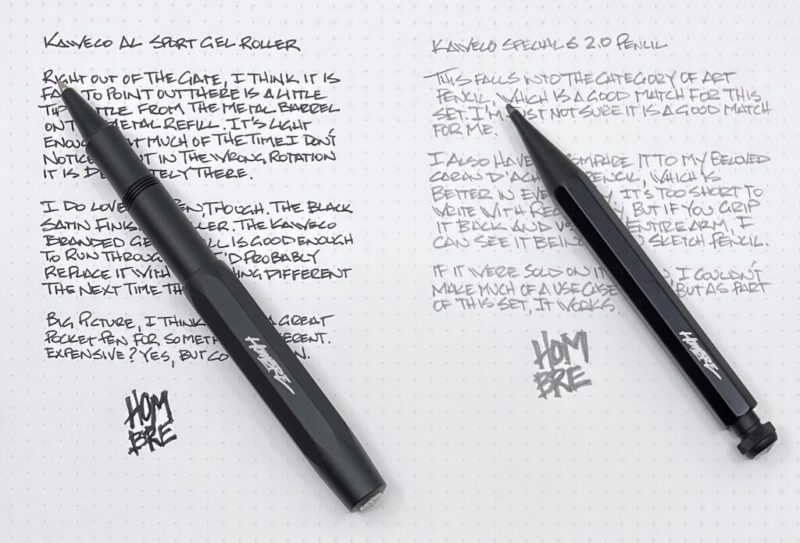 KAWECO AL SPORT GEL ROLLER
RIGHT OUT OF THE GATE, I THINK IT IS
TO POINT OUT THERE IS A LITTLE
TIP FROM THE METAL BARREL
METAL REFILL. IT'S LIGHT
MUCH OF THE TIME I DON'T
IT IN THE WRONG ROTATION
IT IS THERE.
I DO LOVE PEN, THOUGH. THE BLACK
SATIN FINISH THE KAWECO
BRANDED IS GOOD ENOUGH
TO RUN I'D PROBABLY
REPLACE IT WITH DIFFERENT
THE NEXT TIME
BIG PICTURE, I THINK A GREAT
POCKET PEN FOR
EXPENSIVE? YES, BUT
HOM
BRE
HOMBRE
KAWECO SPECIAL S 2.0 PENCIL
THIS FALLS INTO THE CATEGORY OF ART
PENCIL, WHICH IS A GOOD MATCH FOR THIS
SET. I'M JUST NOT SURE IT IS A GOOD MATCH
FOR ME.
I ALSO HAVE COMPARE IT TO MY BELOVED
CARAN D'ACHE PENCIL, WHICH IS
BETTER IN IT'S TOO SHORT TO
WRITE WITH BUT IF YOU GRIP
IT BACK AND ENTIRE ARM, I
CAN SEE IT SKETCH PENCIL.
IF IT WERE SOLD ON I COULDN'T
MAKE MUCH OF A USE CASE BUT AS PART
OF THIS SET, IT WORKS.
HOM
BRE
HOMBRE